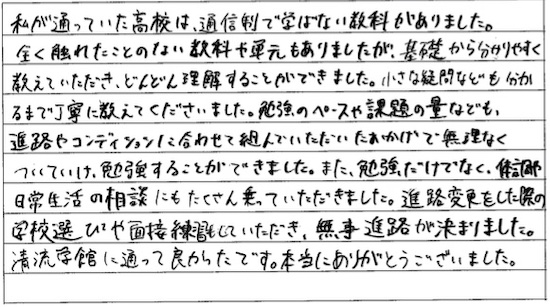 私が通っていた高校は、通信制で学ばない教科がありました。
全く触れたことのない教科や単元もありましたが、基礎から分かりやすく
教えていただき、どんどん理解することができました。小さな疑問なども分か
るまで丁寧に教えてくださいました。勉強のペースや課題の量なども、
進路やコンディションに合わせて組んでいただいたおかげで無理なく
ついていけ、勉強することができました。また、勉強だけでなく、体調や
日常生活の相談にもたくさん乗っていただきました。進路変更をした際の
学校選びや面接練習もしていただき、無事進路が決まりました。
清流学館に通って良かったです。本当にありがとうございました。